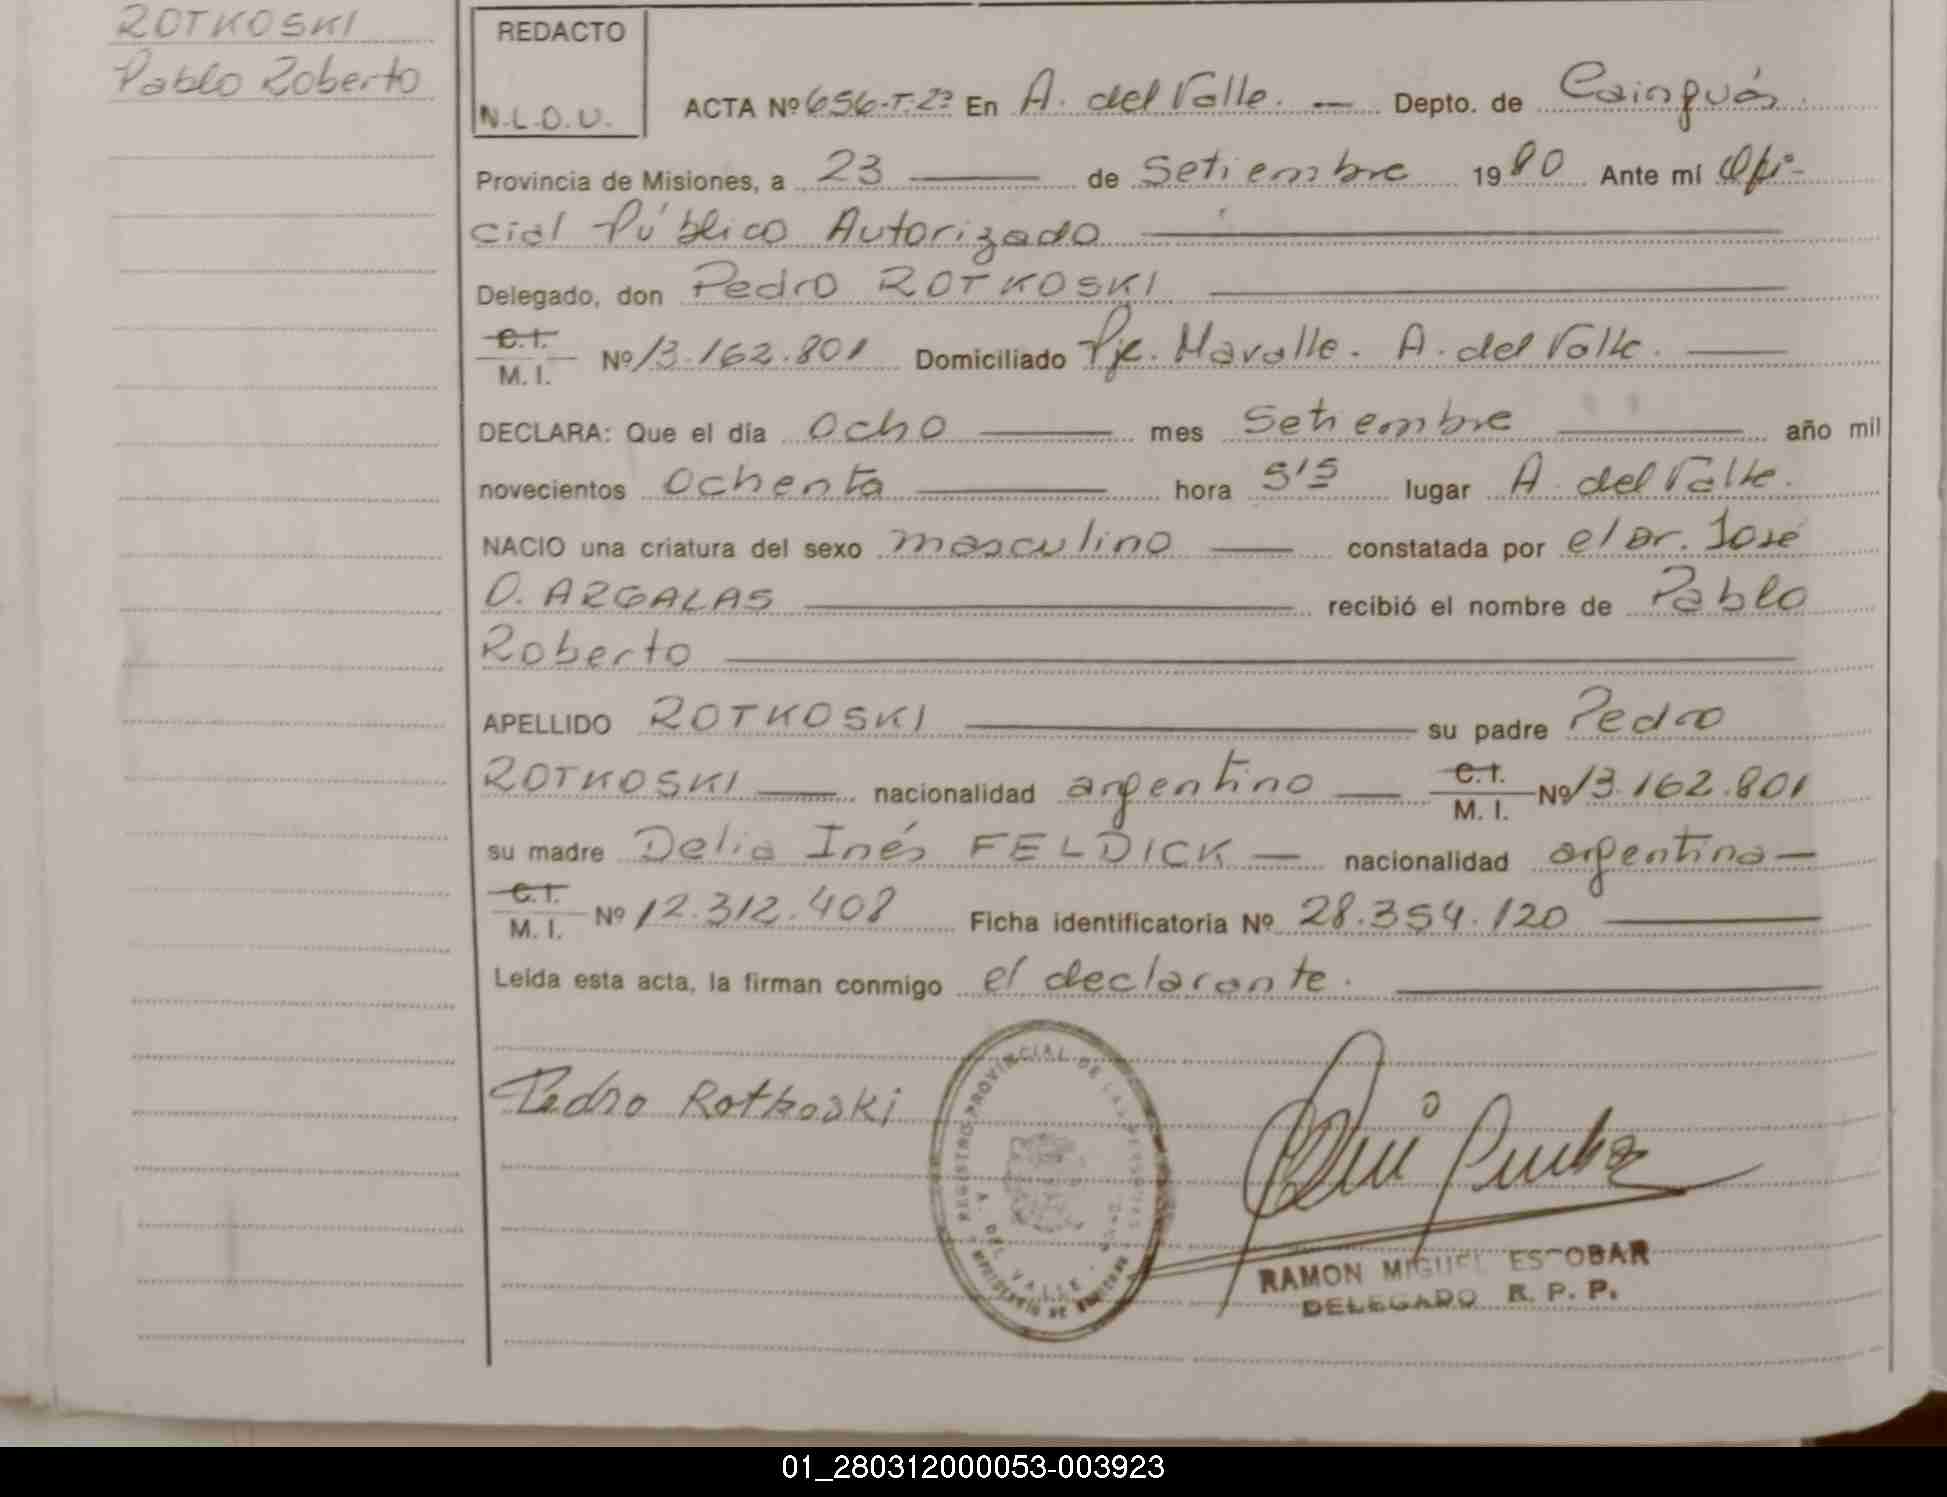 ROTKOSKI
Pablo Roberto
REDACTO
N.L.D.U.
ACTA Nº 656-T-2º En A. del Valle. — Depto. de Cainguás.
Provincia de Misiones, a 23 — de Setiembre 1980 Ante mí Ofi-
cial Público Autorizado
Delegado, don Pedro ROTKOSKI
C.I.
M. I. Nº 13.162.801 Domiciliado Pje. Mavalle. A. del Valle. —
DECLARA: Que el día ocho — mes Setiembre — año mil
novecientos ochenta — hora 5'5 lugar A. del Valle.
NACIO una criatura del sexo masculino — constatada por el Dr. José
O. ARGALAS — recibió el nombre de Pablo
Roberto
APELLIDO ROTKOSKI — su padre Pedro
ROTKOSKI — nacionalidad argentino — C.I. M. I. Nº 13.162.801
su madre Delia Inés FELDICK — nacionalidad argentina —
C.I.
M. I. Nº 12.312.408 Ficha identificatoria Nº 28.354.120
Leída esta acta, la firman conmigo el declarante.
Pedro Rotkoski
REGISTRO PROVINCIAL DE LAS PERSONAS
A. DEL VALLE
RAMON MIGUEL ESCOBAR
DELEGADO R. P. P.
01_280312000053-003923